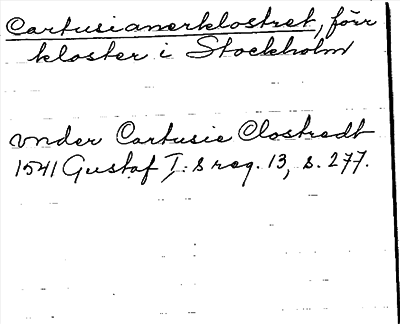 Cartusianerklostret, förr
kloster i Stockholm
vnder Cartusie Clostredt
1541 Gustaf I:s reg. 13, s. 277.